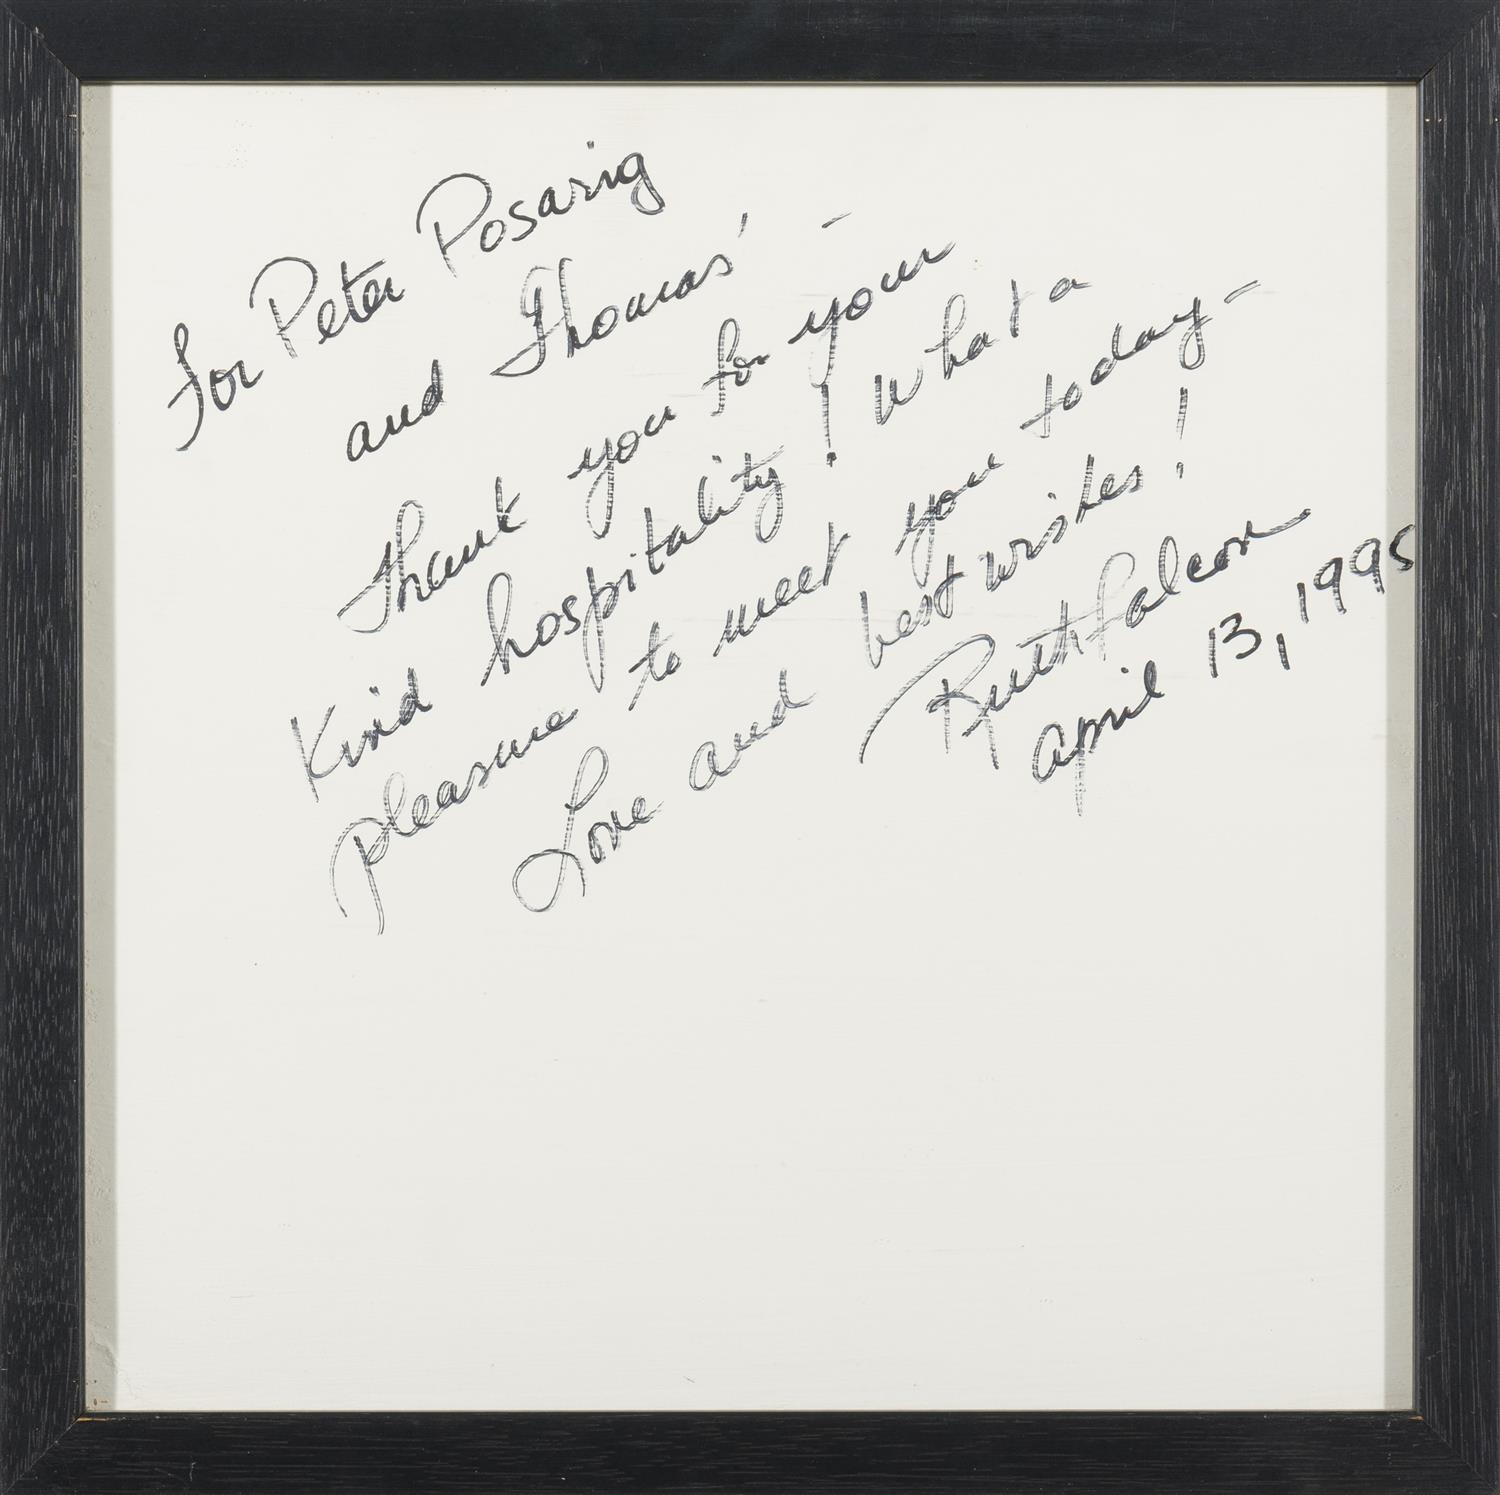 For Peter Posarig
and Thomas' -
Thank you for your
Kind hospitality! What a
pleasure to meet you today -
Love and best wishes!
Ruth Falcon
april 13, 1995